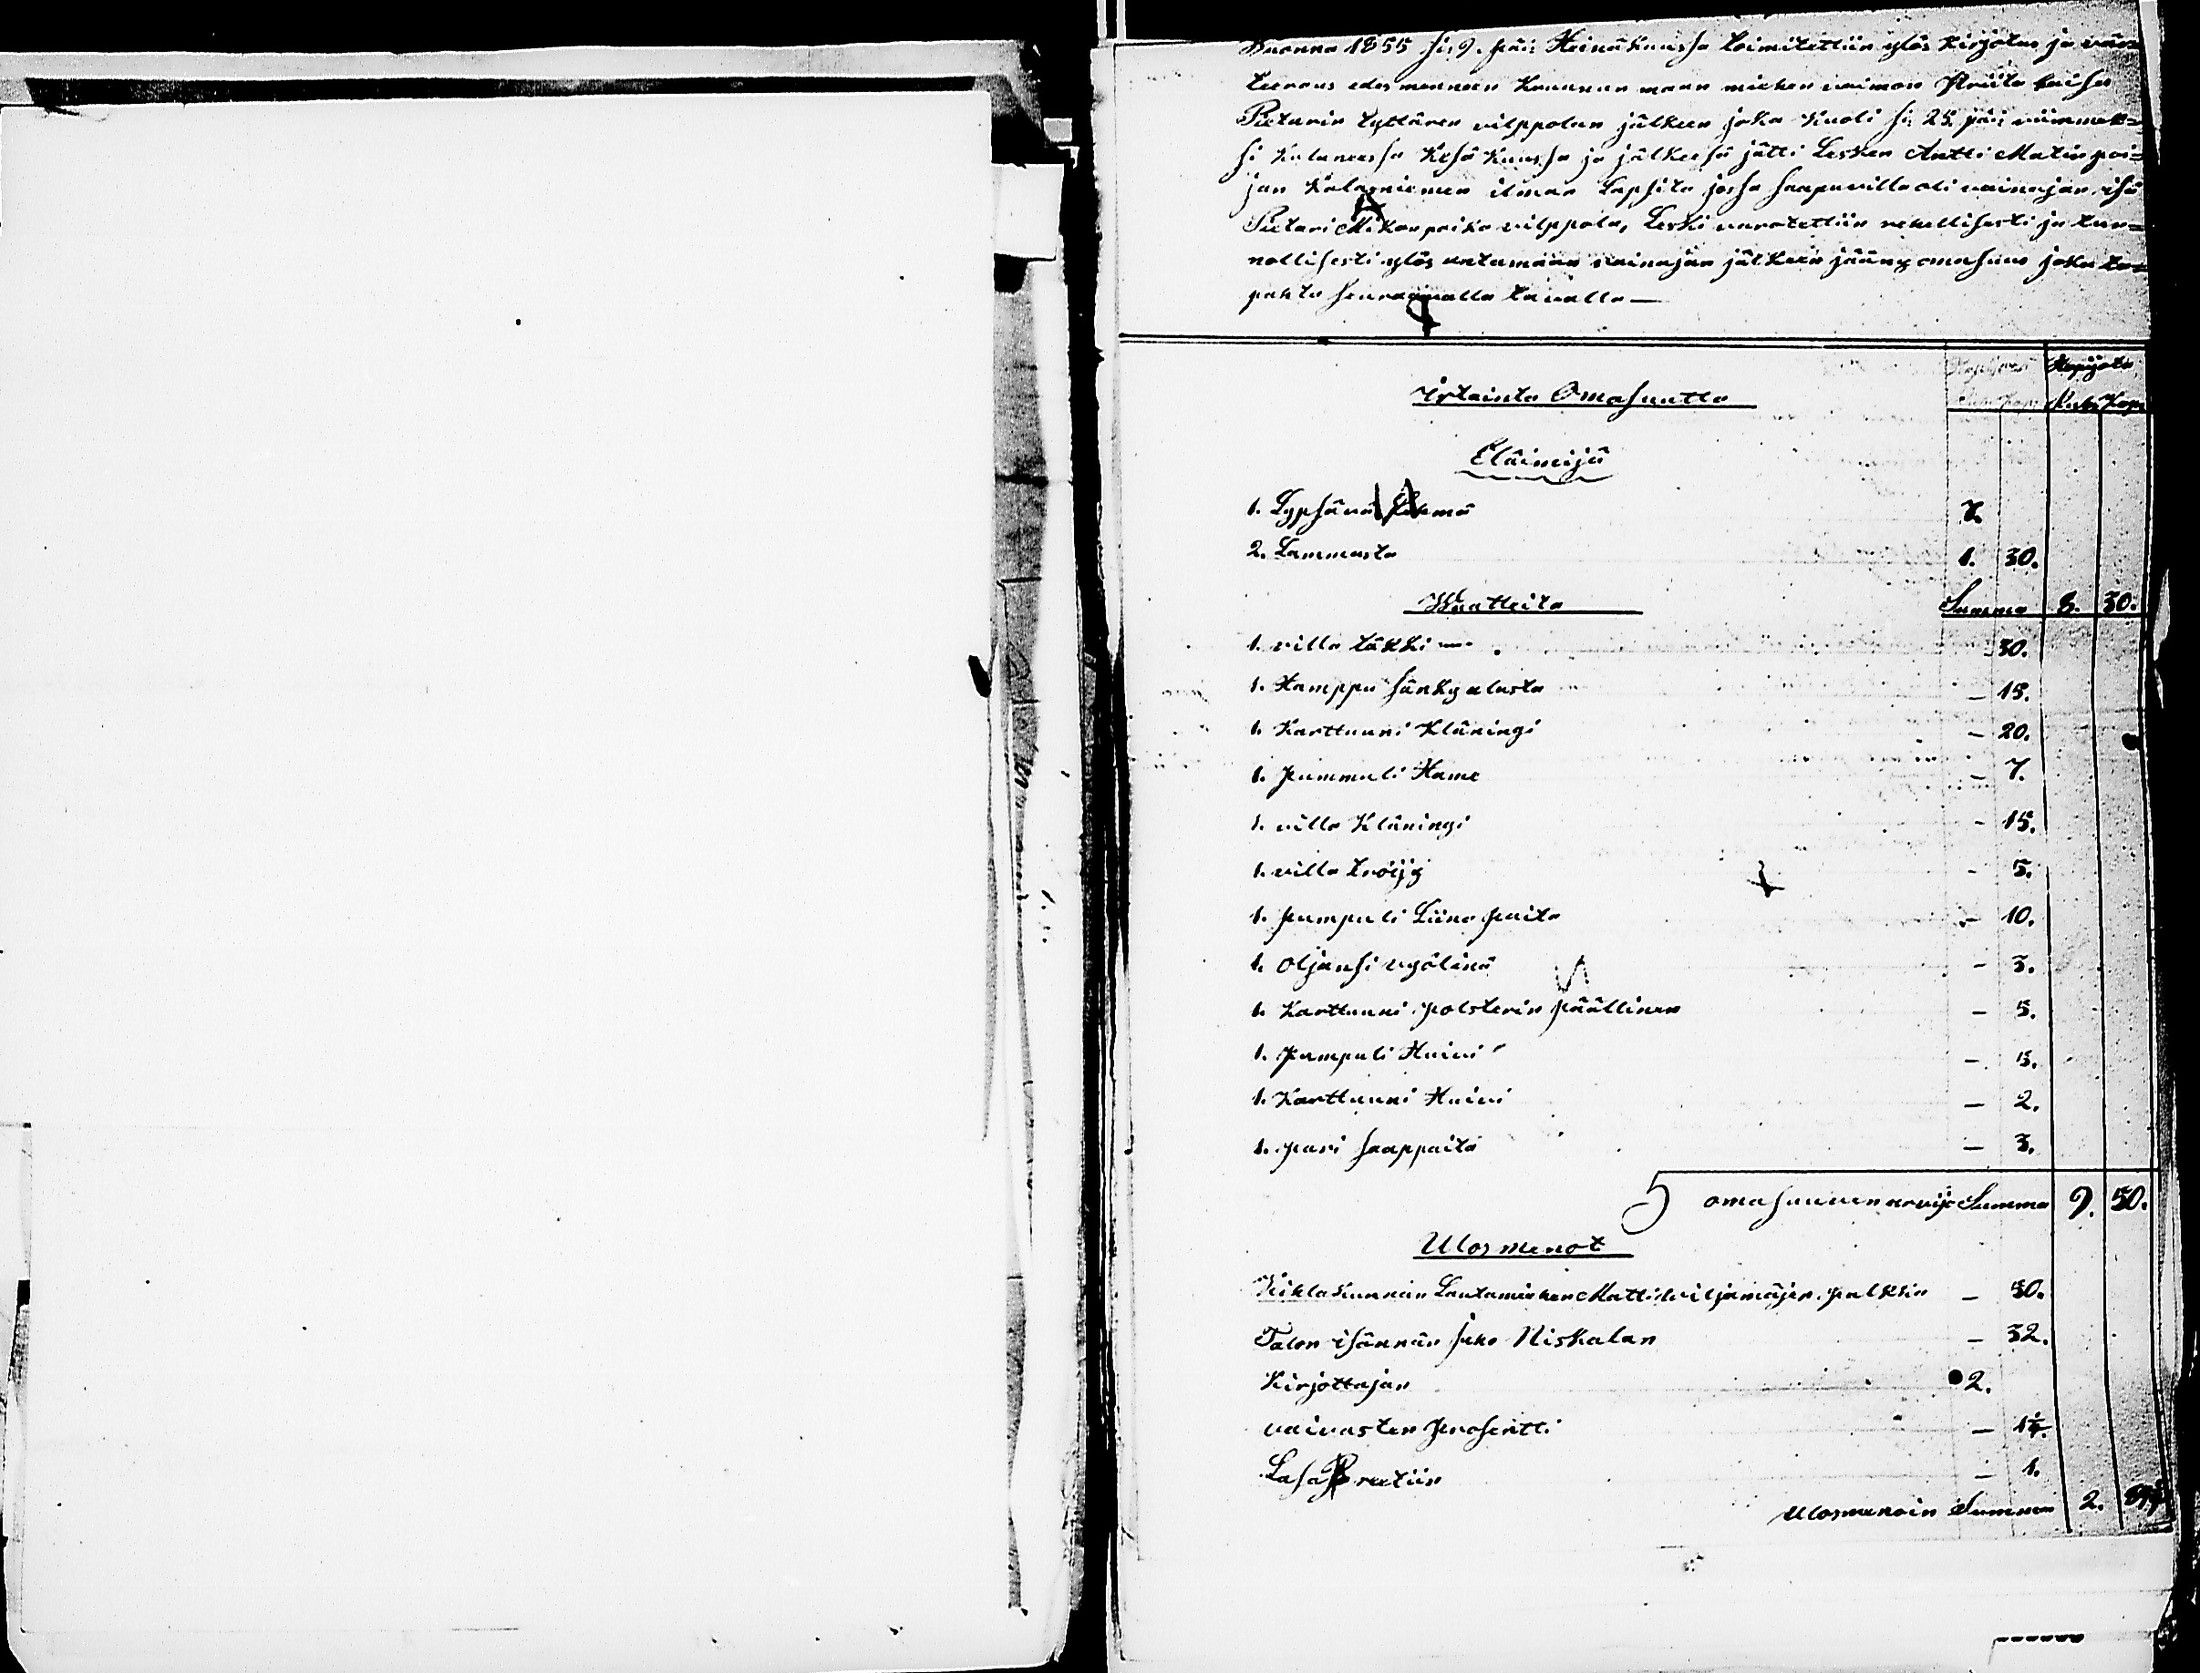 Wuonna 1855 si: 9. päi: Heinäkuussa toimitettiin ylös kirjotus ja vär=
teeraus edesmenneen Kruunun maan miehen vaimon Priita Kaisa
Pietarin tyttären vilppolan jälkeen joka Kuoli si: 25 päi: viimmek=
si Kuluneessa Kesä Kuussa ja jälkeesä jätti Lesken Antti Matin poi=
jan Kalaniemen ilman Lapsita jossa saapuvilla oli vainajan isä
Pietari Mikon poika vilppola, Leski varotettiin rehellisesti ja tun=
nollisesti ylös antamaan vainajan jälkeen jääny omasuus joka ta=
pahtu seuraavalla tavalla —
Hopijata
Rub: Kop:
Irtainta Omasuutta
Eläimijä
1. Lypsävä Lehmä 7.
2. Lammasta 1. 30.
Waatteita Summa 8. 30.
1. villa täkki — 30.
1. Hamppu sänkyalusta — 15.
1. Karttuuni Kläningi — 20.
1. pummuli Hame — 7.
1. villa Kläningi — 15.
1. villa tröijy — 5.
1. pumpuli Liina paita — 10.
1. Oljansi vyölinä — 3.
1. Karttuuni polsterin päällinen — 5.
1. Pumpuli Huivi — 5.
1. Karttuuni Huivi — 2.
1. pari saappaita — 3.
omasuuven arvijo Summa 9. 50.
Ulosmenot
Kihlakunnan Lautamiehen Matti Viljamäjen palkkio — 50.
Talon isännän Juho Niskalan — 32.
Kirjottajan 2.
vaivasten prosentti —
Lasa Reetiin — 1.
Ulosmenoin Summa 2.